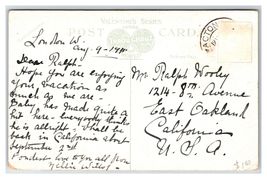 VALENTINE'S SERIES
POST CARD
ACTON
London W.
Aug. 9-1911
Dear Ralph.
Hope you are enjoying
your vacation as
much as we are.
Baby has made quite a
hit here - everybody thinks
he is allright - Shall be
back in California about
September 23rd
Fondest love to you all from
Mr Ralph Wooley
1214-8th Avenue
East Oakland
California
U.S.A.